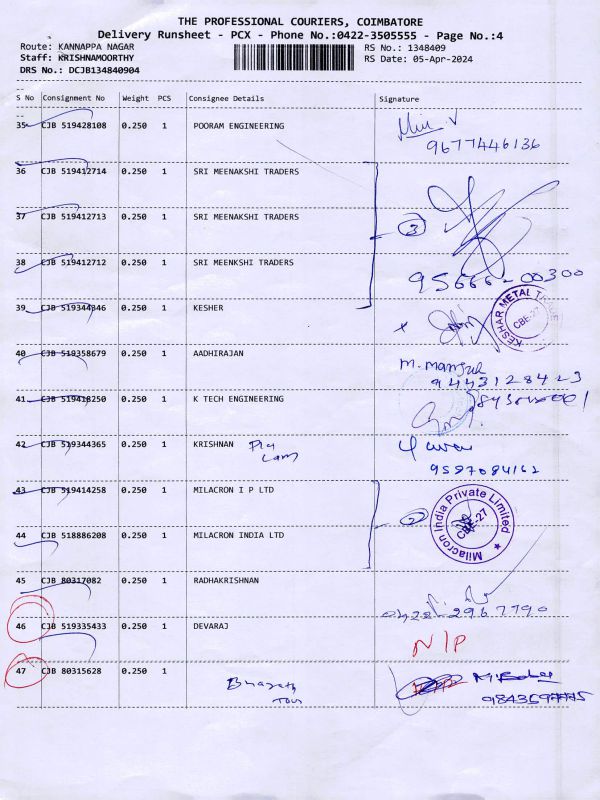 THE PROFESSIONAL COURIERS, COIMBATORE
Delivery Runsheet - PCX - Phone No.:0422-3505555 - Page No.:4
Route: KANNAPPA NAGAR RS No.: 1348409
Staff: KRISHNAMOORTHY RS Date: 05-Apr-2024
DRS No.: DCJB134840904
--
S No Consignment No Weight PCS Consignee Details Signature
--
35 CJB 519428108 0.250 1 POORAM ENGINEERING
9677446136
36 CJB 519412714 0.250 1 SRI MEENAKSHI TRADERS
37 CJB 519412713 0.250 1 SRI MEENAKSHI TRADERS
3
38 CJB 519412712 0.250 1 SRI MEENKSHI TRADERS
95666-00300
39 CJB 519344346 0.250 1 KESHER
KESHAR METAL
CBE-27
40 CJB 519358679 0.250 1 AADHIRAJAN
9443128423
41 CJB 519418250 0.250 1 K TECH ENGINEERING
42 CJB 519344365 0.250 1 KRISHNAN
9587084162
43 CJB 519414258 0.250 1 MILACRON I P LTD
2
Milacron India Private Limited
CBE-27
44 CJB 518886208 0.250 1 MILACRON INDIA LTD
45 CJB 80317082 0.250 1 RADHAKRISHNAN
0422-2967790
46 CJB 519335433 0.250 1 DEVARAJ N/P
47 CJB 80315628 0.250 1
Bharath